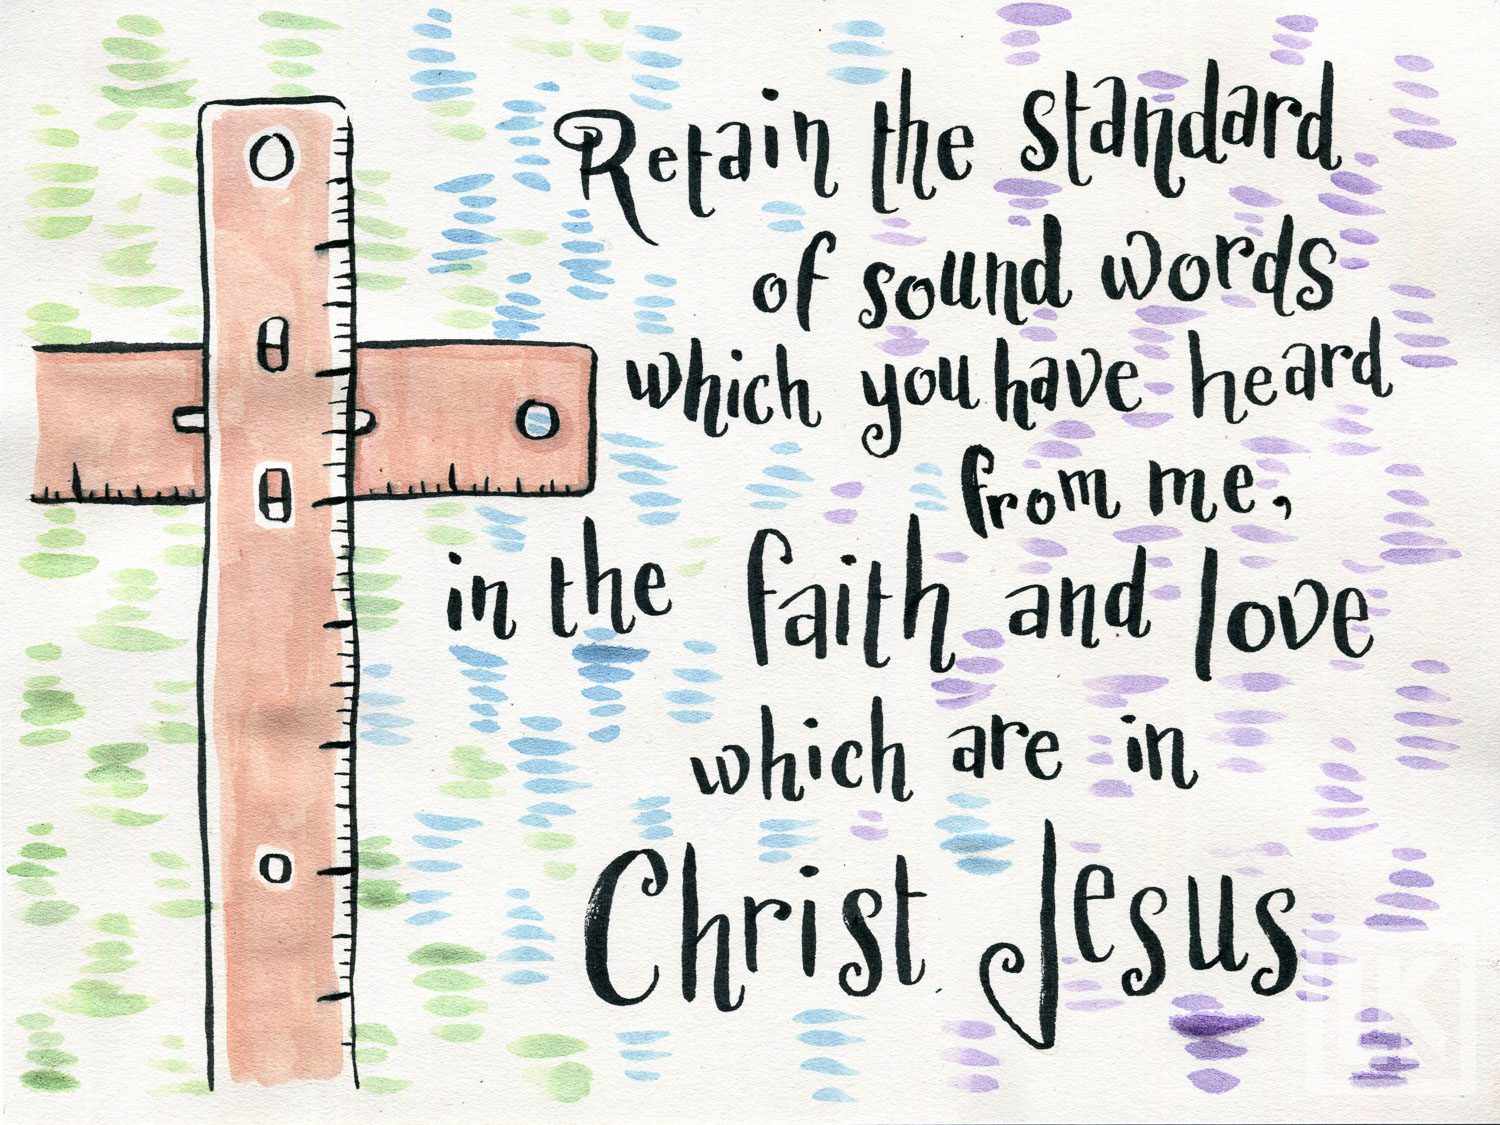 Retain the standard
of sound words
which you have heard
from me,
in the faith and love
which are in
Christ Jesus